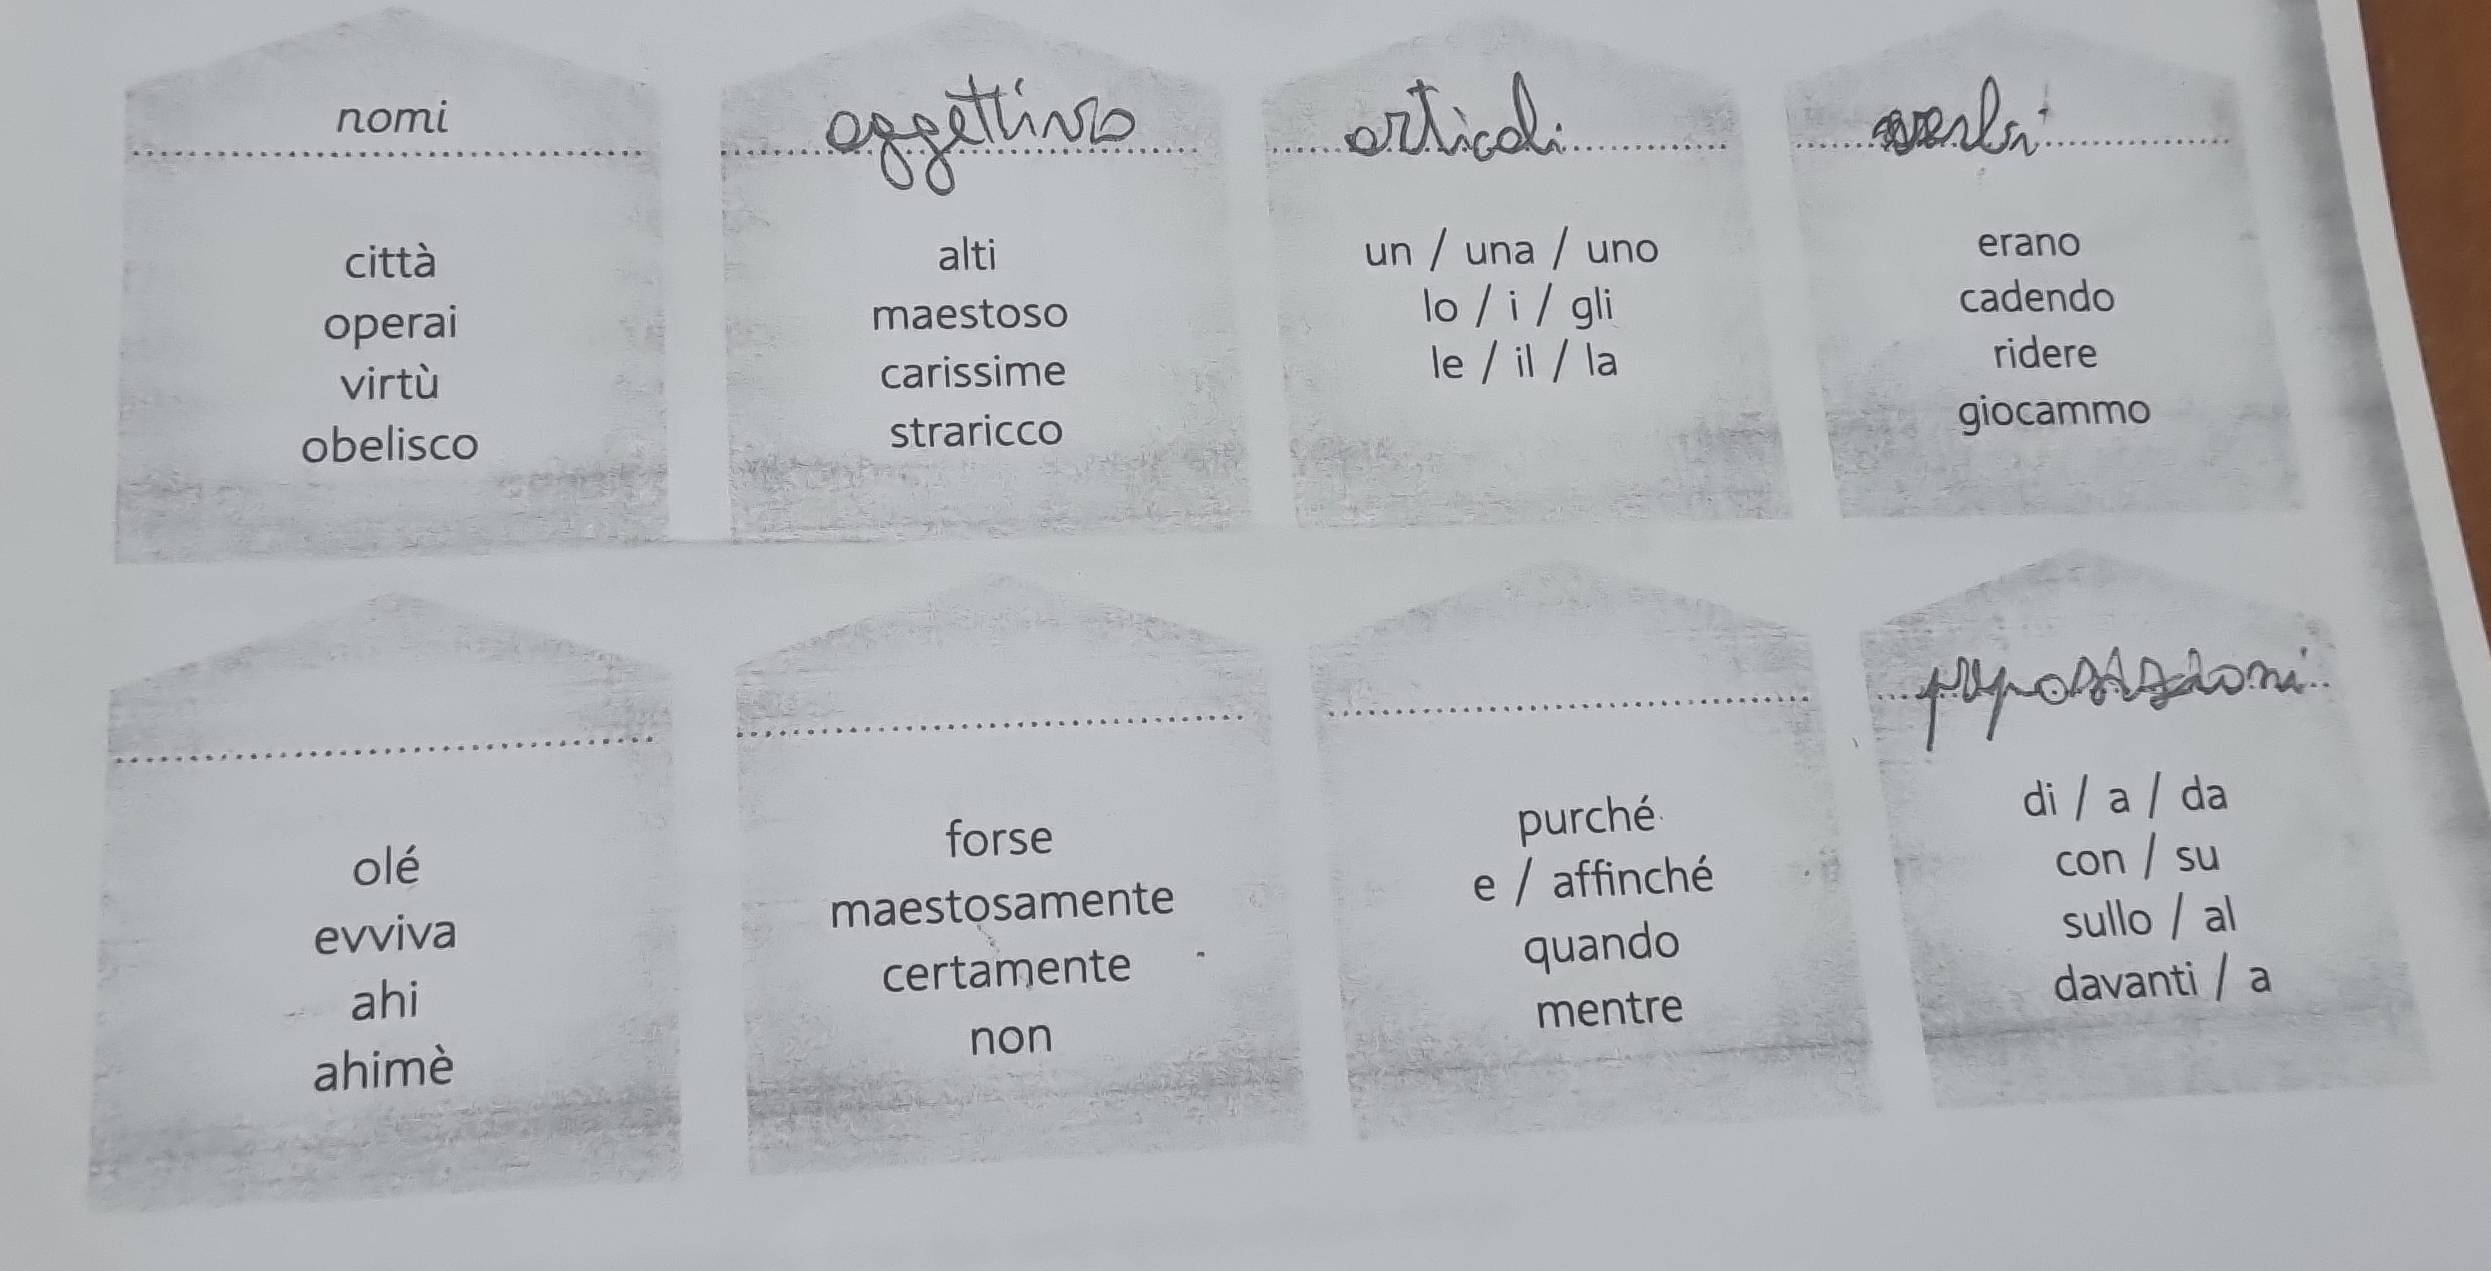 nomi
città
operai
virtù
obelisco
aggettivo
alti
maestoso
carissime
straricco
articoli
un / una / uno
lo / i / gli
le / il / la
verbi
erano
cadendo
ridere
giocammo
olé
evviva
ahi
ahimè
forse
maestosamente
certamente
non
purché
e / affinché
quando
mentre
preposizioni
di / a / da
con / su
sullo / al
davanti / a